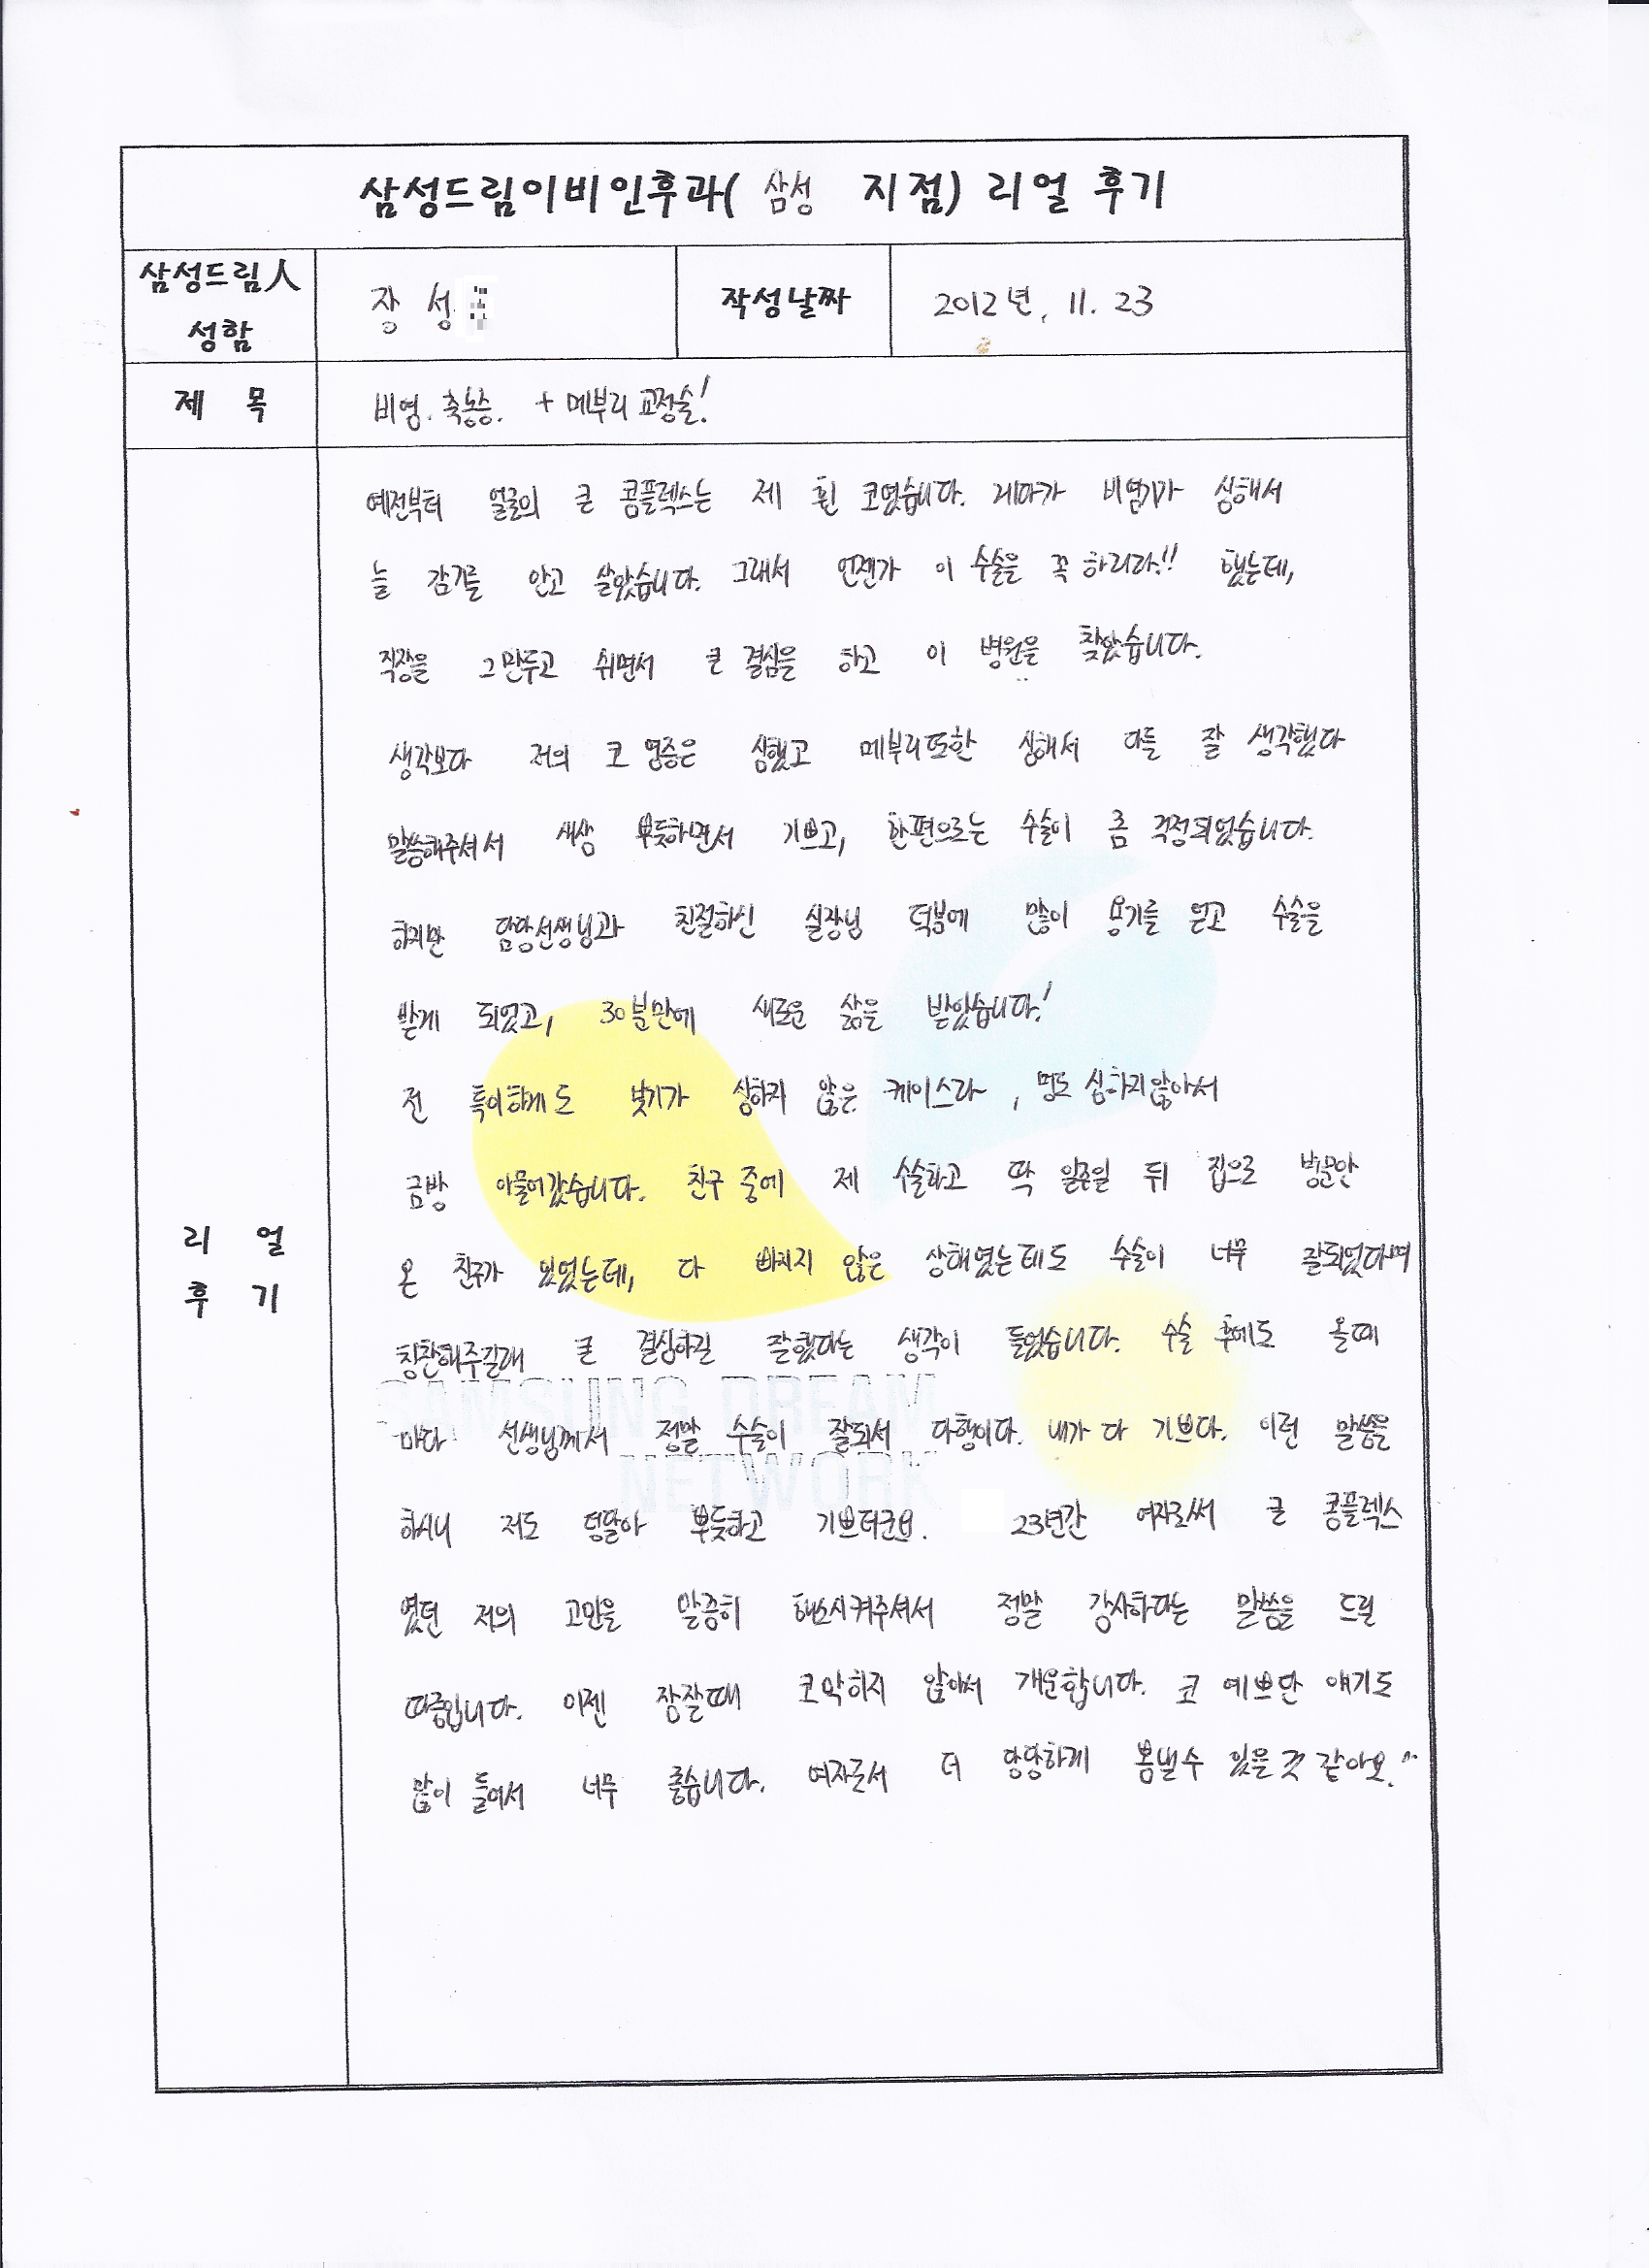 삼성드림이비인후과( 삼성 지점) 리얼 후기
삼성드림人
성함
장 성
작성날짜
2012년. 11. 23
제 목
비염. 축농증. + 메부리 교정술!
예전부터 얼굴의 큰 콤플렉스는 제 휜 코였습니다. 게다가 비염기가 심해서
늘 감기를 안고 살았습니다. 그래서 언젠가 이 수술을 꼭 하리라!! 했는데,
직장을 그만두고 쉬면서 큰 결심을 하고 이 병원을 찾았습니다.
생각보다 저의 코 염증은 심했고 메부리또한 심해서 다들 잘 생각했다
말씀해주셔서 새삼 뿌듯하면서 기쁘고, 한편으로는 수술이 좀 걱정되었습니다.
하지만 담당선생님과 친절하신 실장님 덕분에 많이 용기를 얻고 수술을
받게 되었고, 30분만에 새로운 삶을 받았습니다!
전 특이하게도 붓기가 심하지 않은 케이스라, 멍도 심하지않아서
금방 아물어갔습니다. 친구 중에 제 수술하고 딱 일주일 뒤 집으로 병문안
온 친구가 있었는데, 다 빠지지 않은 상태였는데도 수술이 너무 잘되었다며
칭찬해주길래 큰 결심하길 잘했다는 생각이 들었습니다. 수술 후에도 올때
마다 선생님께서 정말 수술이 잘되서 다행이다. 내가 다 기쁘다. 이런 말씀을
하시니 저도 덩달아 뿌듯하고 기쁘더군요. 23년간 여자로써 큰 콤플렉스
였던 저의 고민을 말끔히 해소시켜주셔서 정말 감사하다는 말씀을 드릴
따름입니다. 이젠 잠잘때 코막히지 않아서 개운합니다. 코 예쁘단 얘기도
많이 들어서 너무 좋습니다. 여자로서 더 당당하게 뽐낼수 있을것 같아요.^^
리 얼
후 기
SAMSUNG DREAM
NETWORK